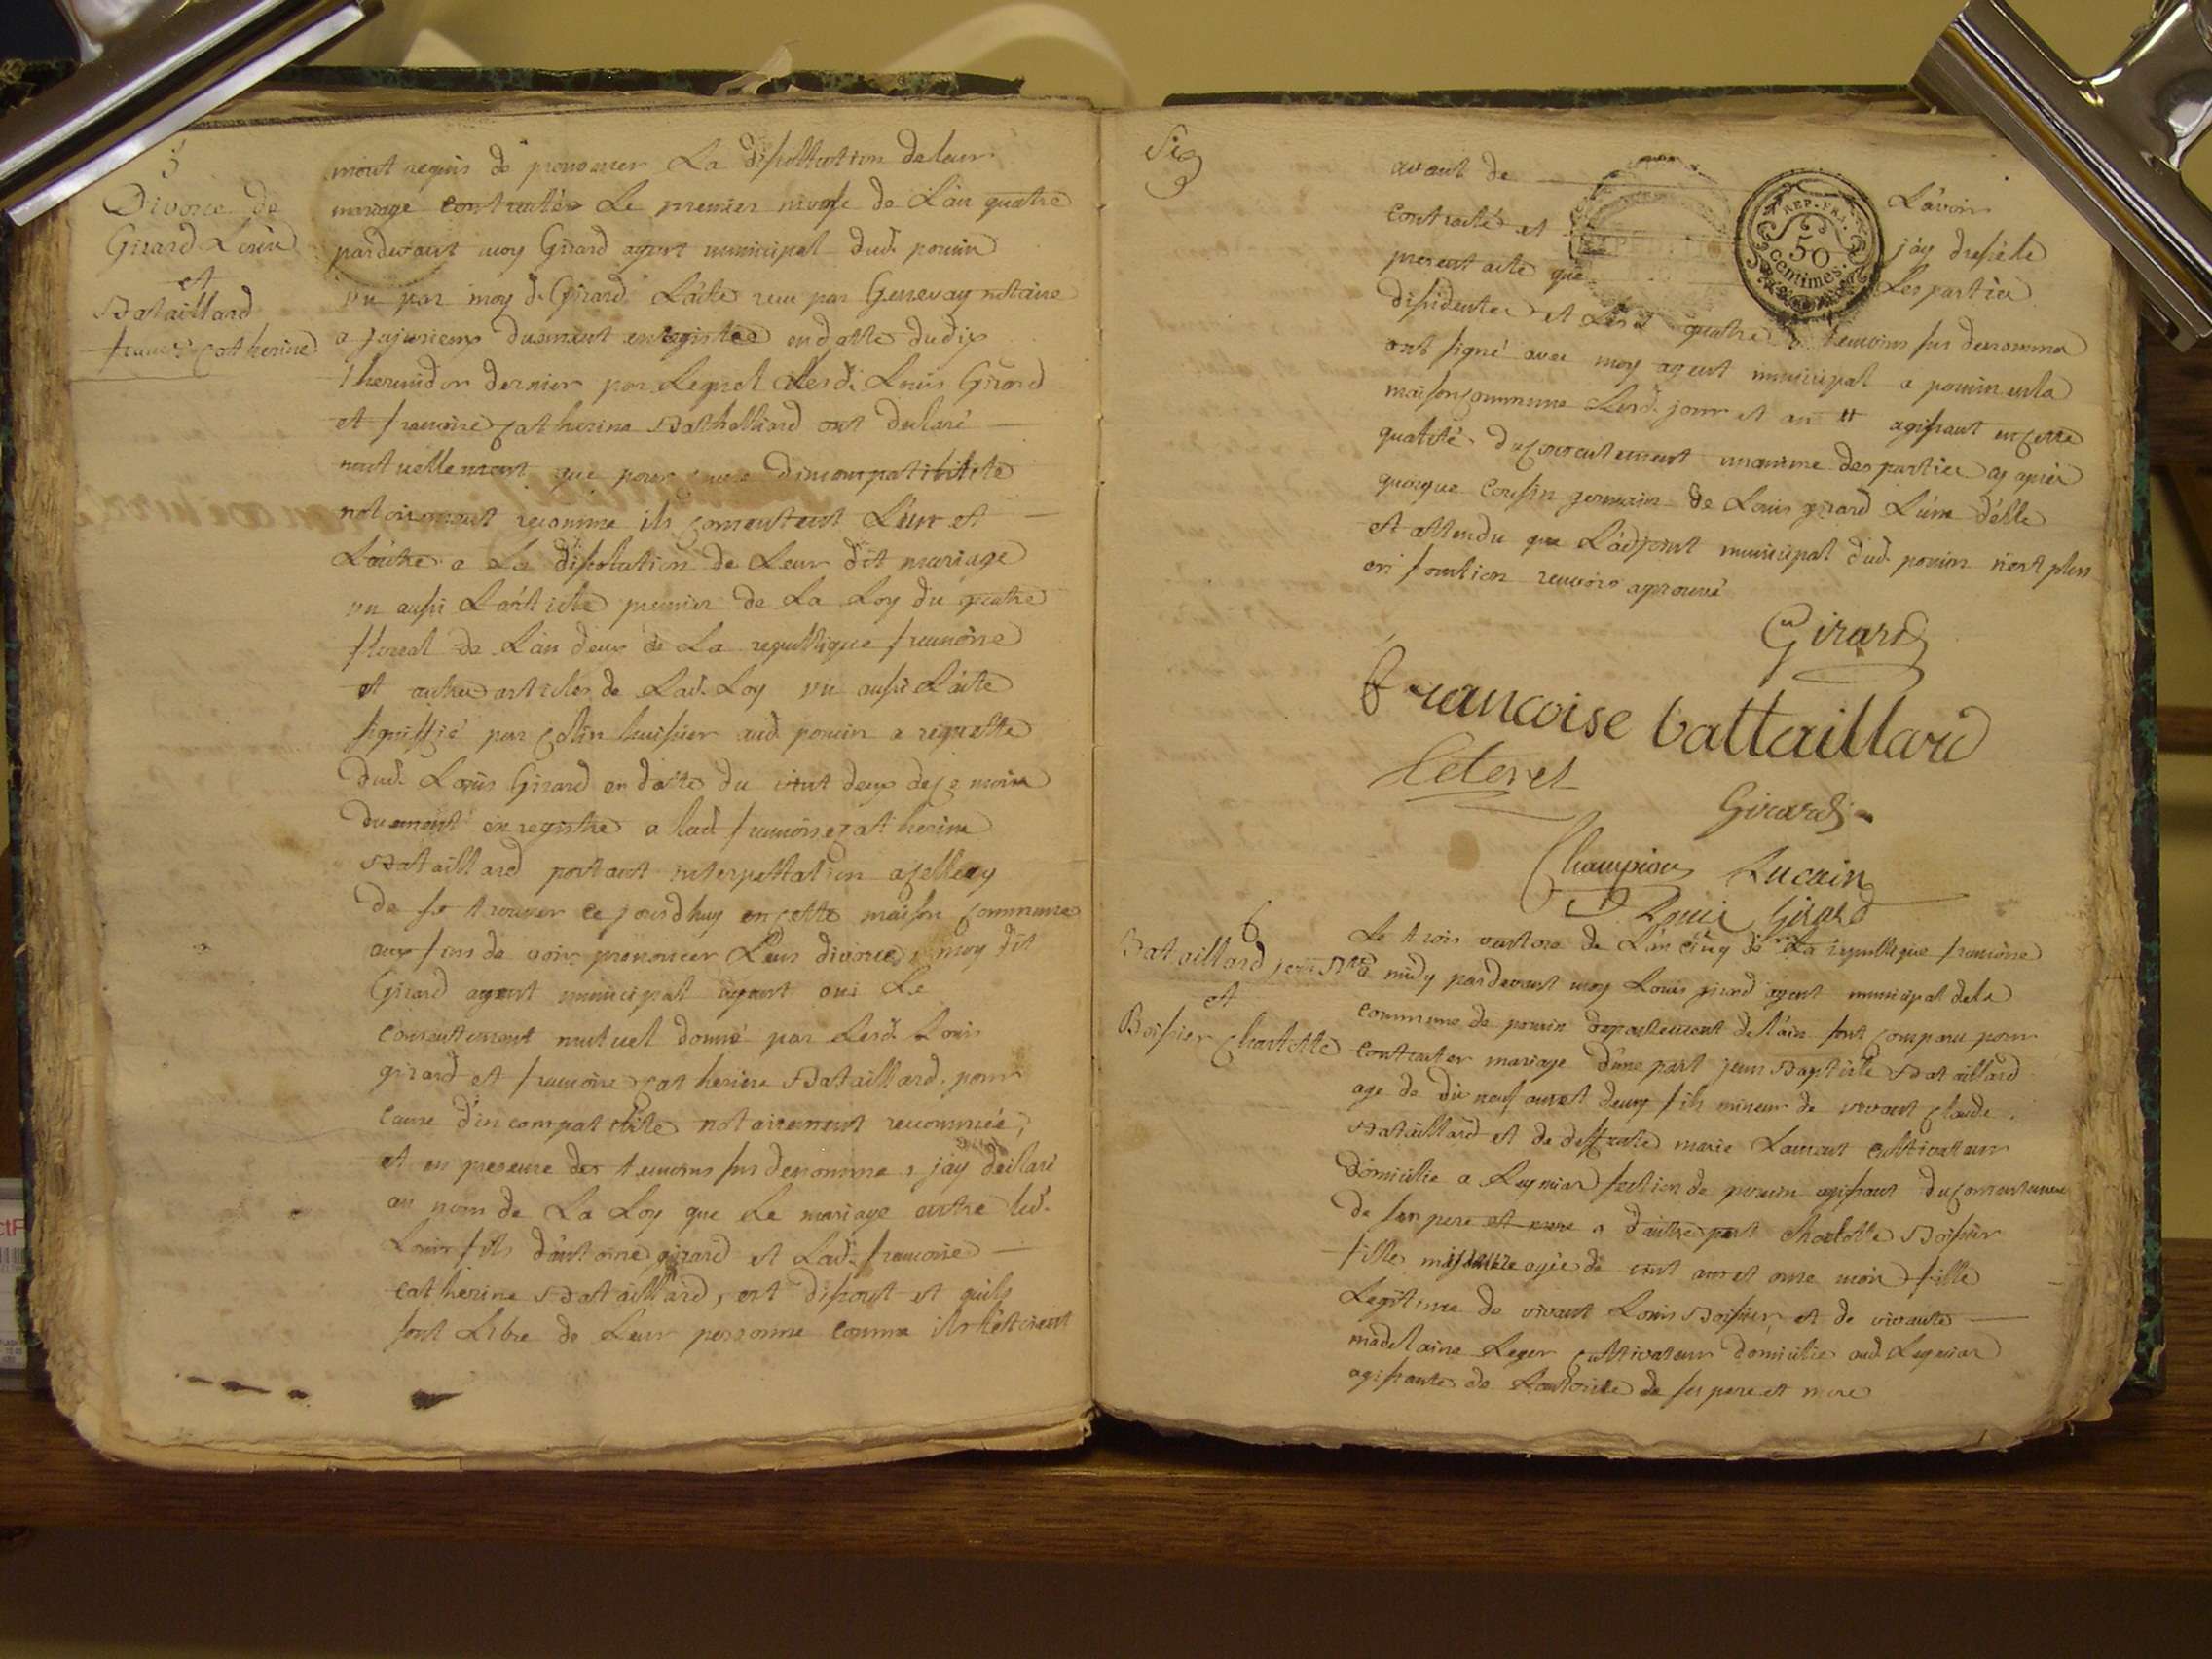 5
Divorce de
Girard Louis
et
Bataillard
françoise catherine
mont requis de prononcer La dissollution de leur
mariage contractée Le premier nivose de L'an quatre
pardevant moy Girard agent municipal dud. pouin
vu par moy d. Girard L'acte reçu par Genevay notaire
a Jujurieux duement enregistré en datte du dix
thermidor dernier par Lequel Lesd. Louis Girard
et francoise catherine Bathalliard ont declaré
mutuellement que pour cause d'incompatibilité
notoirement reconnue ils consentent L'un et
L'autre a La dissolution de Leur dit mariage
vu aussi L'article premier de La Loy du quatre
floreal de L'an deux de La republique francoise
et autres articles de Lad. Loy vu aussi L'acte
signiffié par Colin huissier aud. pouin a requette
dud. Louis Girard en datte du vint deux de ce mois
duement enregistré a lad. francoise catherine
Bataillard portant interpellation a celle cy
de se trouver ce jourdhuy en cette maison commune
aux fins de voir prononcer Leur divorce, moy dit
Girard agent municipal ayant oui Le
consentement mutuel donné par Lesd. Louis
girard et francoise catherine Bataillard, pour
cause d'incompatibilité notoirement reconnuée,
et en presence des temoins sus denommé, j'ay declaré
au nom de La Loy que Le mariage entre led.
Louis fils d'antoine girard et Lad. francoise
catherine Bataillard, est dissout et quils
sont Libre de Leur personne comme ils l'étoient
Six
avant de L'avoir
contracté et j'ay dressé le
present acte que Les parties
dissidentes et Lesd. quatre temoins sus denommé
ont signé avec moy agent municipal a pouin en la
maison commune Lesd. jour et an # agissant en cette
qualité du consentement unanime des parties cy apres
quoique cousin germain de Louis girard L'une d'elle
et attendu que L'adjoint municipal dud. pouin n'est plus
en fonction renvois aprouvé
Girard
francoise battaillard
Leteret
Girard
Champion Lucain
Louis Girard
6
Bataillard jean Bte
et
Boissier Charlotte
Le trois ventose de L'an cinq de La republique francoise
a midy pardevant moy Louis girard agent municipal de la
commune de pouin departement de L'ain sont comparu pour
contracter mariage d'une part jean Baptiste Bataillard
age de dix neuf ans et deux fils mineur de vivant claude
Bataillard et de deffunte marie Laurent cultivateur
domicilie a Leymiat section de pouin agissant du consentement
de son pere et mere a d'autre part Charlotte Boissier
fille majeure agée de vint ans et onze mois fille
Legitime de vivant Louis Boissier et de vivante
madelaine Leger cultivateur domicilie aud. Leymiat
agissante de L'autorité de ses pere et mere
REP. FRA.
50
centimes.